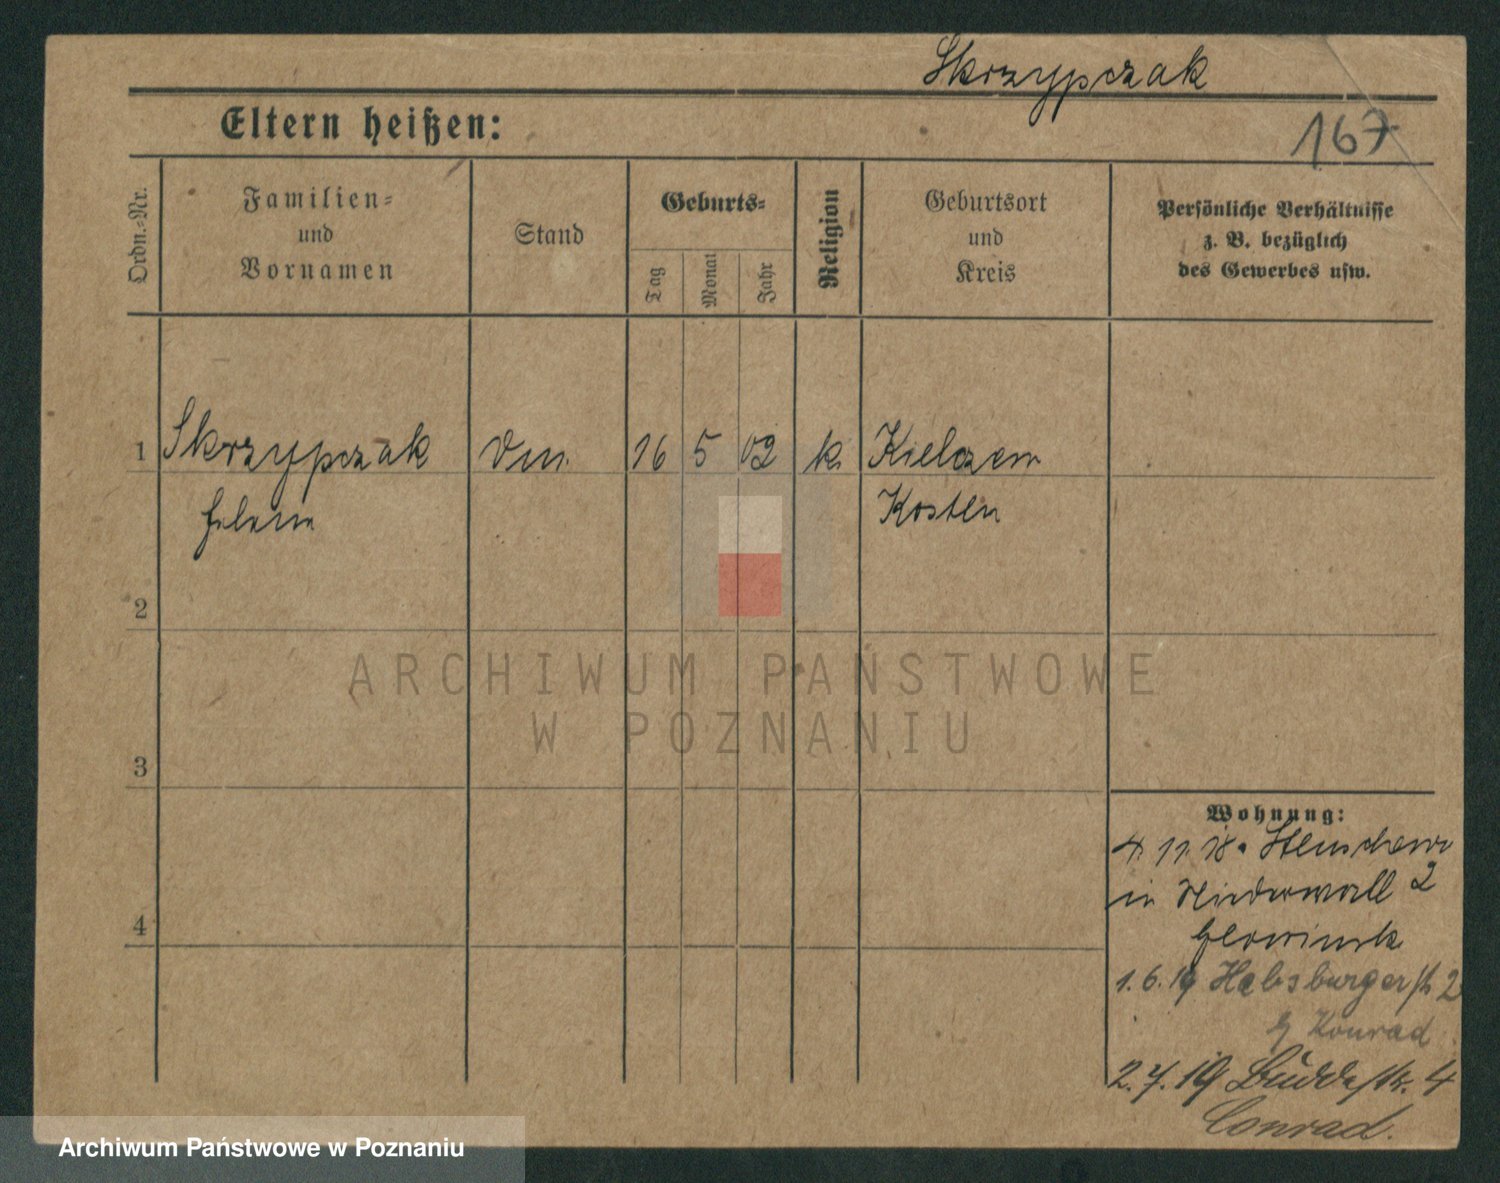 Skrzypczak
Eltern heißen:
167
Ordn.-Nr.
Familien-
und
Vornamen
Stand
Geburts-
Tag
Monat
Jahr
Religion
Geburtsort
und
Kreis
Persönliche Verhältnisse
z. B. bezüglich
des Gewerbes usw.
1 Skrzypczak 16 5 02 k. Kielczewo
Helene Kosten
2
3
4
ARCHIWUM PAŃSTWOWE
W POZNANIU
Wohnung:
4. 11. 18.
in Niederwall 2
1. 6. 19 Habsburgerstr 2
b/ Konrad
2. 7. 19 Buddestr. 4
Conrad.
Archiwum Państwowe w Poznaniu